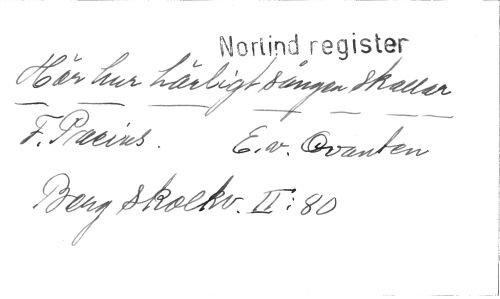 Norlind register
Hör hur härligt sången skallar
F. Pacius. E. v. Qvanten
Berg Skolkv. II: 80